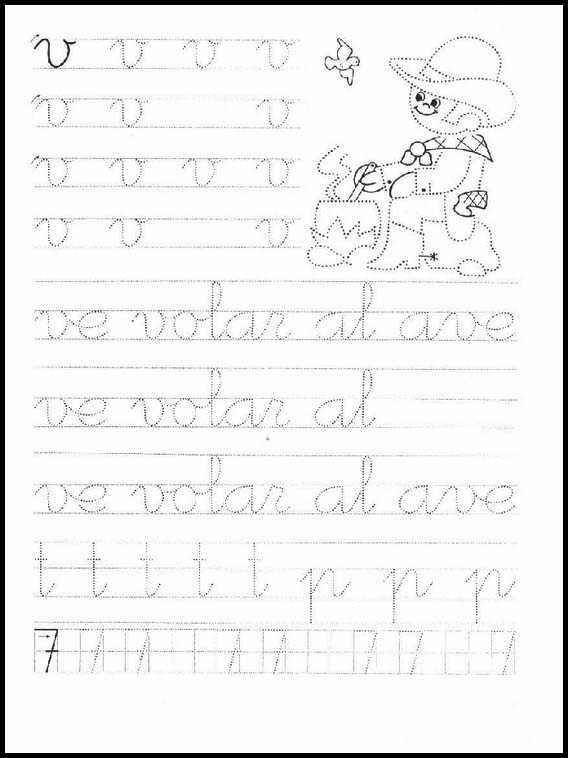 v v v v
v v v
v v v v
v v v
ve volar al ave
ve volar al
ve volar al ave
t t t t t p p p
7